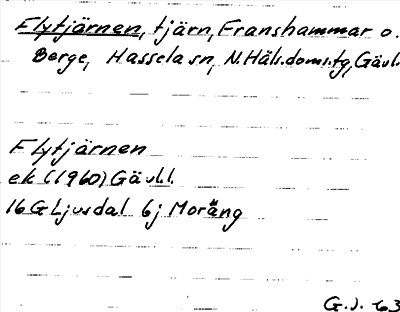 Flytjärnen, tjärn, Franshammar o.
Berge, Hassela sn, N.Häls.doms.tg, Gävl.
Flytjärnen
ek (1960) Gävl.l.
16G Ljusdal 6j Moräng
G.J. 63